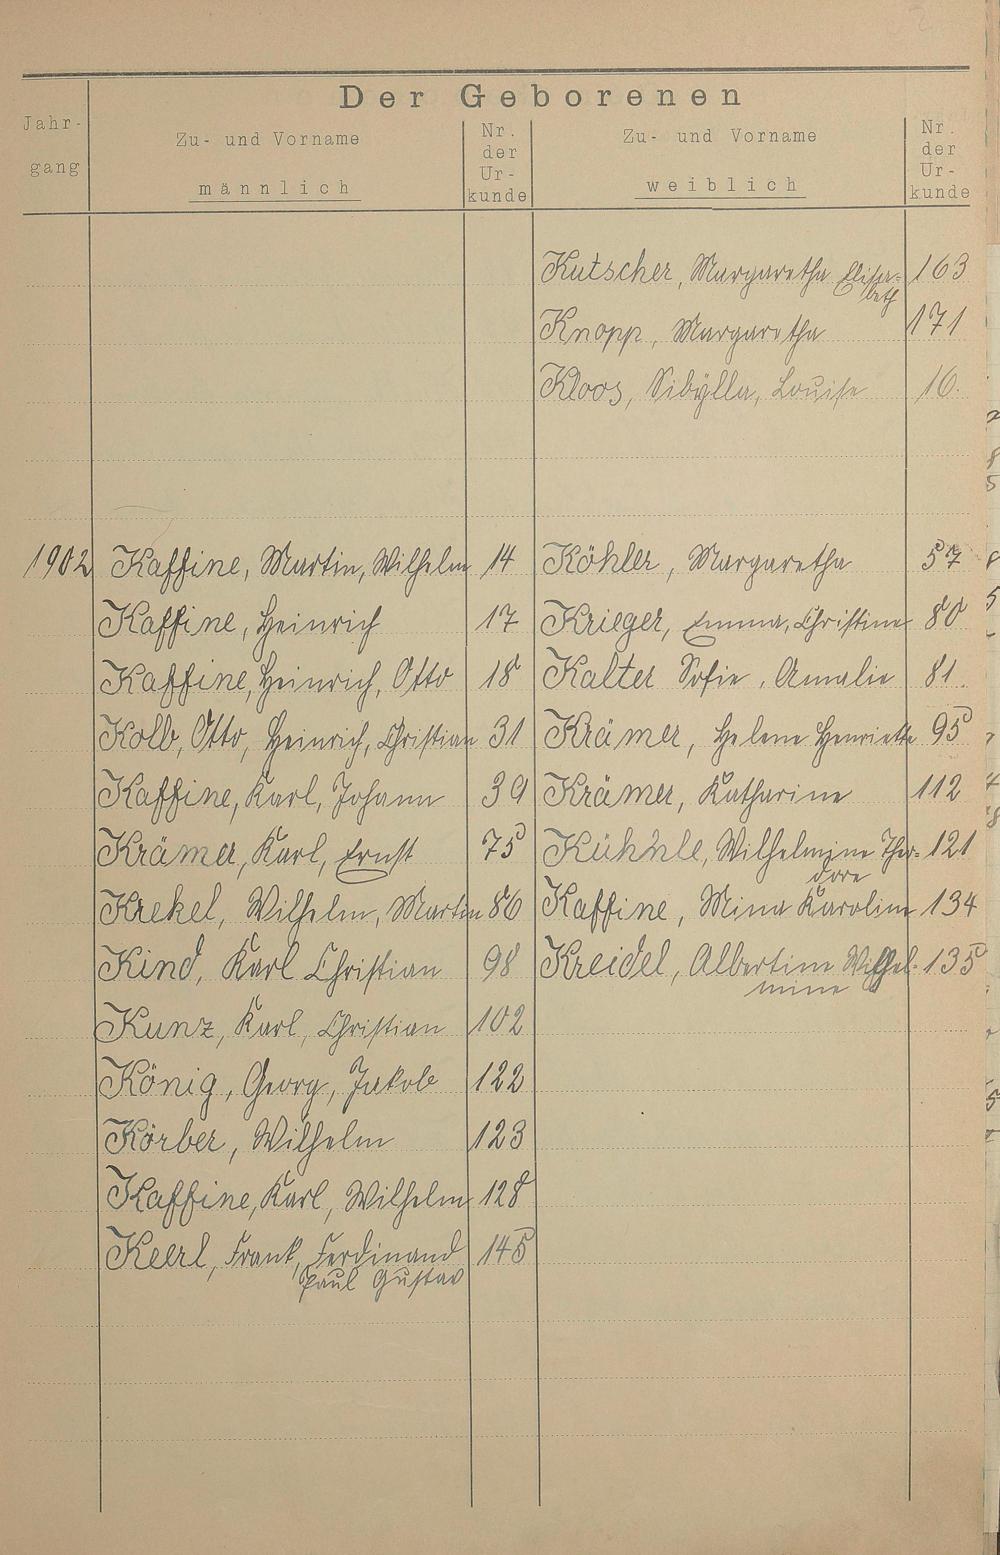 Der Geborenen
Jahr-
gang
Zu- und Vorname
männlich
Nr.
der
Ur-
kunde
Zu- und Vorname
weiblich
Nr.
der
Ur-
kunde
Kutscher, Margaretha Elisa- 163
beth
Knopp, Margaretha 171
Kloos, Sibÿlla, Louise 16.
1902 Kaffine, Martin, Wilhelm 14 Köhler, Margaretha 57
Kaffine, Heinrich 17 Krieger, Emma, Christine 80
Kaffine, Heinrich, Otto 18 Kalter Sofie, Amalie 81.
Kolb, Otto, Heinrich, Christian 31 Krämer, Helene Henriette 95
Kaffine, Karl, Johann 39 Krämer, Katharine 112
Krämer, Karl, Ernst 75 Kühnle, Wilhelmine Theo- 121
dore
Krekel, Wilhelm, Martin 86 Kaffine, Mina Karoline 134
Kind, Karl Christian 98 Kreidel, Albertine Wilhel- 135
mine
Kunz, Karl, Christian 102
König, Georg, Jakob 122
Körber, Wilhelm 123
Kaffine, Karl, Wilhelm 128
Keerl, Frank, Ferdinand 145
Paul Gustav